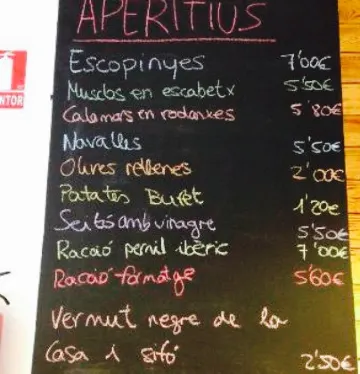 APERITIUS
Escopinyes 7'00€
Musclos en escabetx 5'50€
Calamars en rodanxes 5'80€
Navalles 5'50€
Olives rellenes 2'00€
Patates Bufet 1'20€
Seitó amb vinagre 5'50€
Racció pernil ibèric 7'00€
Racció formatge 5'60€
Vermut negre de la
casa i sifó 2'50€
NTOR